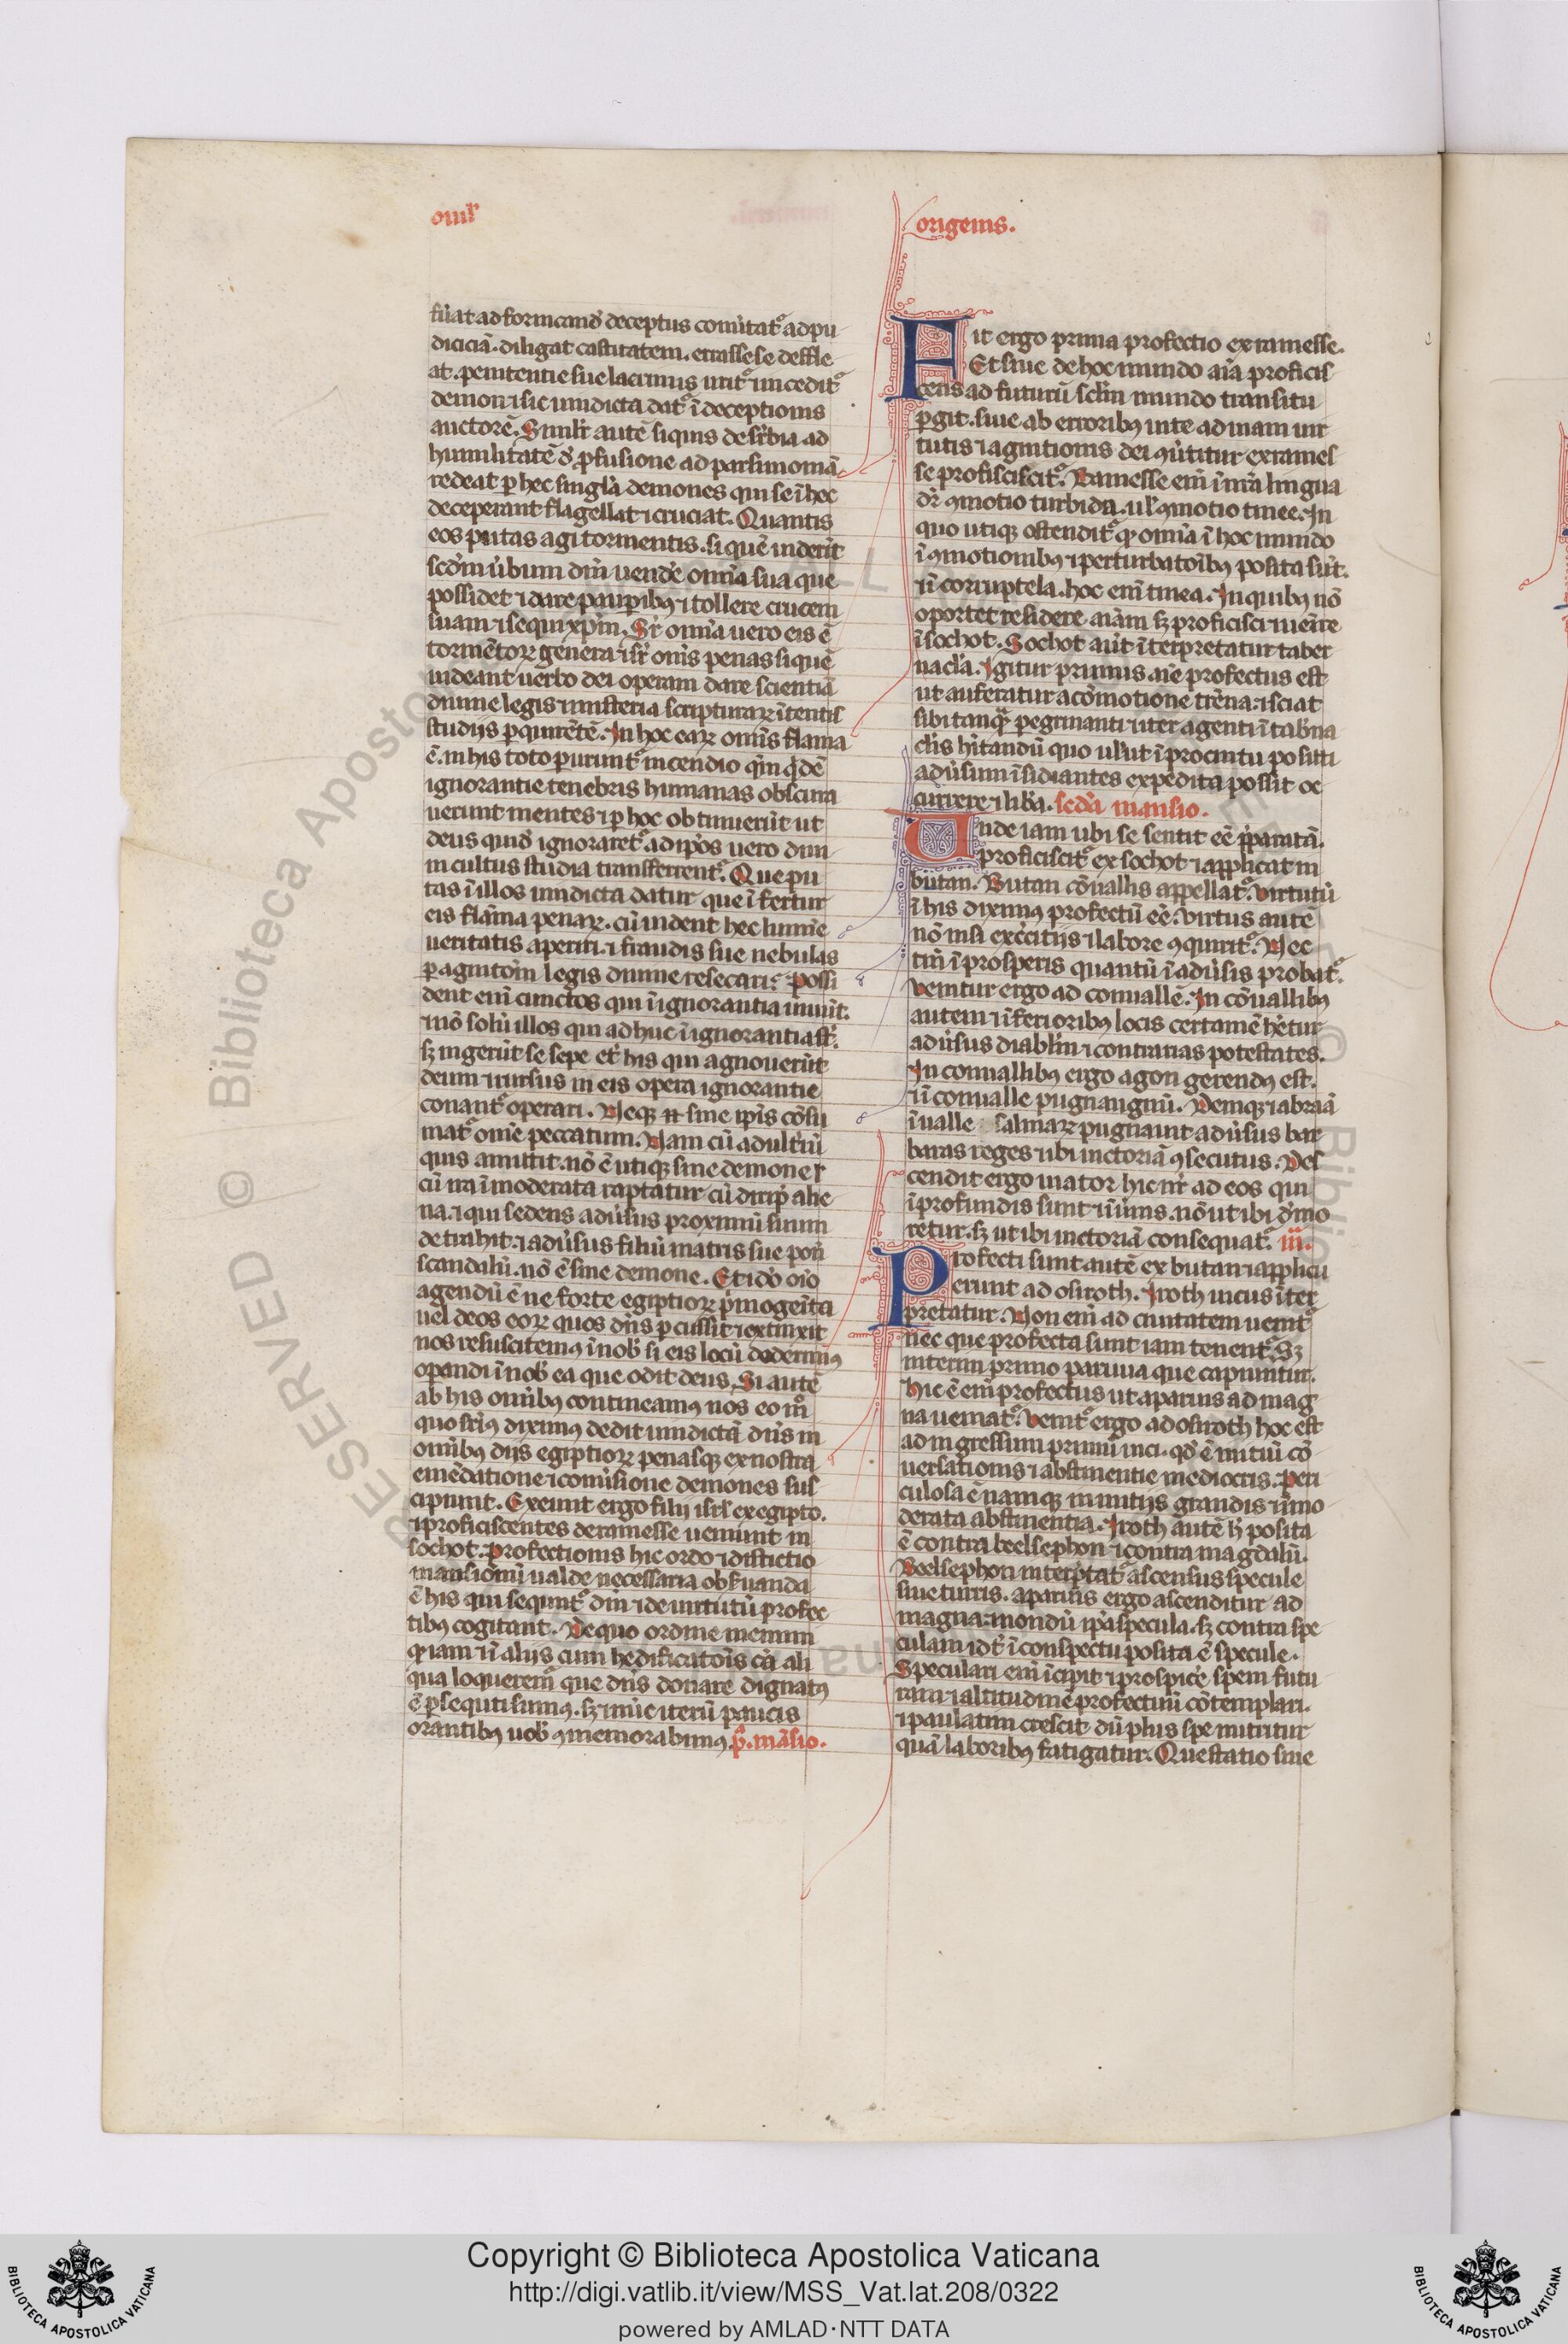 omlʼ
origenis.
fuͥat ad fornicandͦ deceptus cōuͥtatᷣ ad pu
diciciā. diligat castitatem. errasse se defle
at. penitentie sue lacrimis uritᷣ ⁊ incēditᷣ
demon ⁊ sic uindicta datᷣ ī deceptionis
auctorē. Similiͬ autē siquis de suꝑbia ad
humilitatē de ꝓfusione ad parsimoniā
redeat ꝑ hec singͣla demones qui se ī hoc
deceperant flagellat ⁊ cruciat. Quantis
eos putas agi tormentis. si quē uiderīt
scdm̄ ùbum dn̄i uendeͬ omīa sua que
possidet ⁊ dare pauꝑibꝫ ⁊ tollere crucem
suam ⁊ sequi xp̄m. Sr̄ omīa uero eis ē
tormētoꝝ genera ⁊ sr̄ om̄s penas si quē
uideant uerbo dei operam dare scientiā
diuine legis ⁊ misteria scripturaꝝ ītentis
studijs ꝑquirētē. In hoc eaꝝ omīs flama
ē. in his toto ꝑuruntᷣ incendio qm̄ qͥdē
ignorantie tenebris humanas obscura
uerunt mentes ⁊ ꝑ hoc obtinuerūt ut
deus quidē ignoraretᷣ ad ip̄os uero diui
ni cultus studia transferrentᷣ. Que pu
tas ī illos uindicta datur que īfertur
eis flāma penaꝝ. cū uident hec lumīe
ueritatis aperiri. ⁊ fraudis sue nebulas
ꝑ agnitoīm legis diuine resecari. Possi
dent em̄ cunctos qui ī ignorantia uiuūt.
⁊ nō solū illos qui adhuc ī ignorantia st̄.
sꝫ ingerūt se sepe et his qui agnouerūt
deum ⁊ rursus in eis opera ignorantie
conantᷣ operari. Neqꝫ n̄ sine ip̄is cōsu
matᷣ om̄e peccatum. Nam cū adultͥiū
quis amittit. nō ē utiqꝫ sine demone
cū ira īmoderata raptatur cū diripͥ alie
na. ⁊ qui sedens adùsus proximū suum
detrahit: ⁊ adùsus filiū matris sue poīt
scandalū. nō ē sine demone. Et idͦ oīo
agendū ē ne forte egiptioꝝ pͥmogenͥta
uel deos eoꝝ quos dn̄s ꝑcussit ⁊ extinxit
nos resuscitemꝰ ī nobͥ si eis locū dederimꝰ
oꝑandi ī nobͥ ea que odit deus. Si autē
ab his omībꝫ contineamꝰ nos eo mͦ
quo supͥus diximꝰ dedit uindictā dn̄s in
omībꝫ dijs egiptioꝝ penasqꝫ ex nostra
emēdatione ⁊ conùsione demones sus
cipiunt. Exeunt ergo filij isrl̄ ex egipto.
⁊ proficiscentes de ramesse ueniunt in
sochot. Profectionis hic ordo ⁊ distictio
mansionū ualde necessaria obseruanda
ē his qui sequntᷣ dm̄ ⁊ de uirtutū profec
tibꝰ cogitant. De quo ordine memini
qͣ iam ⁊ ī alijs cum hedificatoīs cā ali
qua loqueremᷣ que dn̄s donare dignatꝰ
ē ꝑsequti sumꝰ. sꝫ ⁊ nūc iterū paucis
orantibꝫ uobͥ ꝯmemorabimꝰ. pͣ. māsio.
Fit ergo prima profectio ex ramesse.
Et siue de hoc mundo aīa proficis
cens ad futurū sclm̄ mundo transitu
ꝑgit. siue ab erroribꝫ uite ad uiam uir
tutis ⁊ agnitionis dei ꝯùtitur ex rames
se profisciscitᷣ. Ramesse em̄ ī nr̄a lingua
dr̄ ꝯmotio turbida. ul̓ ꝯmotio tinee. In
quo utiqꝫ ostenditᷣ qͣ omīa ī hoc mundo
ī ꝯmotionibꝫ ⁊ perturbatoībꝫ posita sūt.
⁊ ī corruptela. hoc em̄ tinea. In quibꝫ nō
oportet residere aīam sꝫ proficisci ⁊ ueīre
ī sochot. Sochot aut̄ īterpretatur taber
nacͣla. Igitur primus aīe profectus est
ut auferatur a cōmotione trēna: ⁊ sciat
sibi tanqͣ ꝑegrinanti ⁊ iter agenti ī tabͬna
clīs hītandū quo ulut̄ ī procintu positi
adùsum īsidiantes expedita possit oc
currere ⁊ libͣa. secͦda mansio.
Unde iam ubi se sentit eē pͣparatā.
proficiscitᷣ ex sochot ⁊ applicat in
butan. Butan cōuallis appellatᷣ. Virtutū
ī his diximꝰ profectū eē. Virtus autē
nō nisi exēcitijs ⁊ labore ꝯquiritᷣ. Nec
tm̄ ī prosperis quantū ī adùsis probatᷣ.
Venitur ergo ad conuallē. In cōuallibꝫ
autem ⁊ īferioribꝫ locis certamē hētur
adùsus diablm̄ ⁊ contrarias potestates.
In conuallibꝫ ergo agon gerendꝰ est.
⁊ ī conualle pugnanqm̄. Deniqꝫ ⁊ abraā
ī ualle salinaꝝ pugnauit adùsus bar
baros reges ⁊ ibi uictoriā ꝯsecutus. Des
cendit ergo uiator hic nr̄ ad eos qui
ī profundis sunt ⁊ ī imis. nō ut ibi dͤmo
retur. sꝫ ut ibi uictoriā consequatᷣ. iij.
Profecti sunt autē ex butan ⁊ applicu
erunt ad osiroth. Iroth uicus īter
pretatur. Non em̄ ad ciuitatem uenitᷣ
nec que profecta sunt iam tenentᷣ. Sꝫ
interim primo paruua que capiuntur.
Hic ē em̄ profectus ut a paruis ad mag
na ueniatᷣ. Venitᷣ ergo ad osiroth hoc est
ad ingressum primū uici. qdͦ ē initiū cō
uersationis ⁊ abstinentie mediocris. Peri
culosa ē namqꝫ in initijs grandis ⁊ īmo
derata abstinentia. Iroth autē hͥ posita
ē contra beelsephon ⁊ contra magdalū.
Beelsephon interpͣtatᷣ ascensus specule
siue turris. a paruis ergo ascenditur ad
magna: ⁊ nondū ip̄a specula. sꝫ contra spe
culam idͭ ī conspectu posita ē specule.
Speculari em̄ īcipit ⁊ prospicē spem futu
ram ⁊ altitudinē profectuū cōtemplari.
⁊ paulatim crescit dū plus spe nutritur
quā laboribꝫ fatigatur. Que statio siue
Copyright © Biblioteca Apostolica Vaticana
http://digi.vatlib.it/view/MSS_Vat.lat.208/0322
powered by AMLAD·NTT DATA